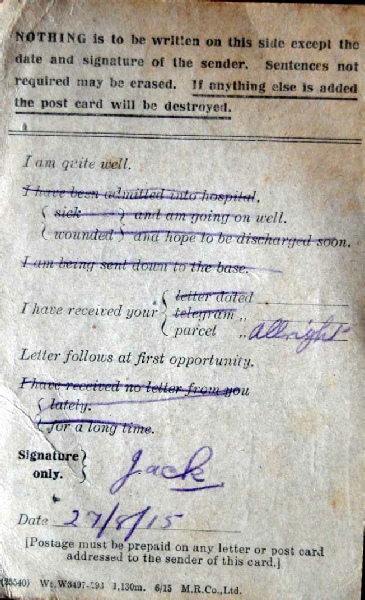 NOTHING is to be written on this side except the
date and signature of the sender. Sentences not
required may be erased. If anything else is added
the post card will be destroyed.
I am quite well.
I have been admitted into hospital.
{ sick } and am going on well.
{ wounded } and hope to be discharged soon.
I am being sent down to the base.
I have received your { letter dated
telegram ,,
parcel ,, allright
Letter follows at first opportunity.
I have received no letter from you
{ lately.
{ for a long time.
Signature }
only. Jack
Date 27/8/15
[Postage must be prepaid on any letter or post card
addressed to the sender of this card.]
(25540) Wt. W3497-293 1,130m. 6/15 M.R.Co.,Ltd.